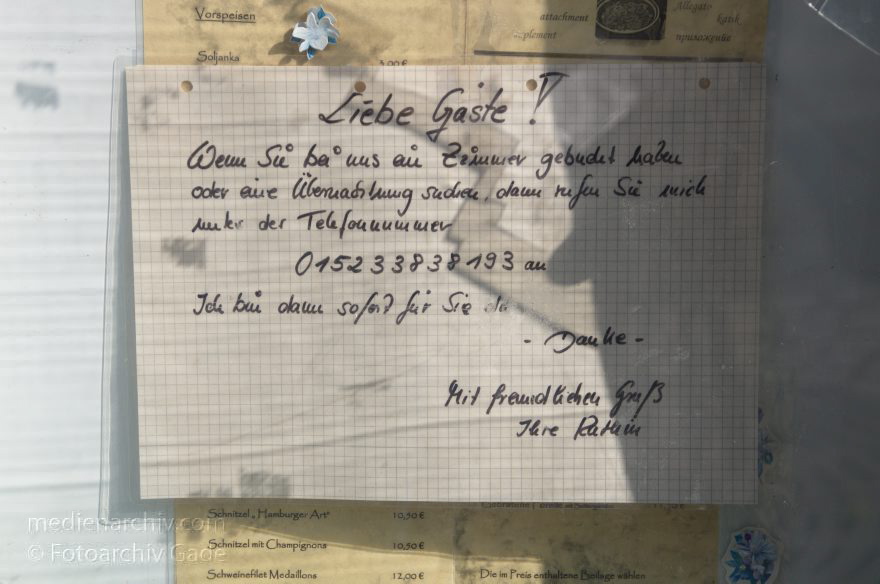 Vorspeisen
Soljanka 3,00 €
attachment
Allegato
katık
приложение
Liebe Gäste!
Wenn Sie bei uns ein Zimmer gebucht haben
oder eine Übernachtung suchen, dann rufen Sie mich
unter der Telefonnummer
015233838193 an
Ich bin dann sofort für Sie da
- Danke -
Mit freundlichen Gruß
Ihre
Schnitzel „Hamburger Art" 10,50 €
Schnitzel mit Champignons 10,50 €
Schweinefilet Medaillons 12,00 €
Die im Preis enthaltene Beilage wählen
medienarchiv.com
© Fotoarchiv Gade